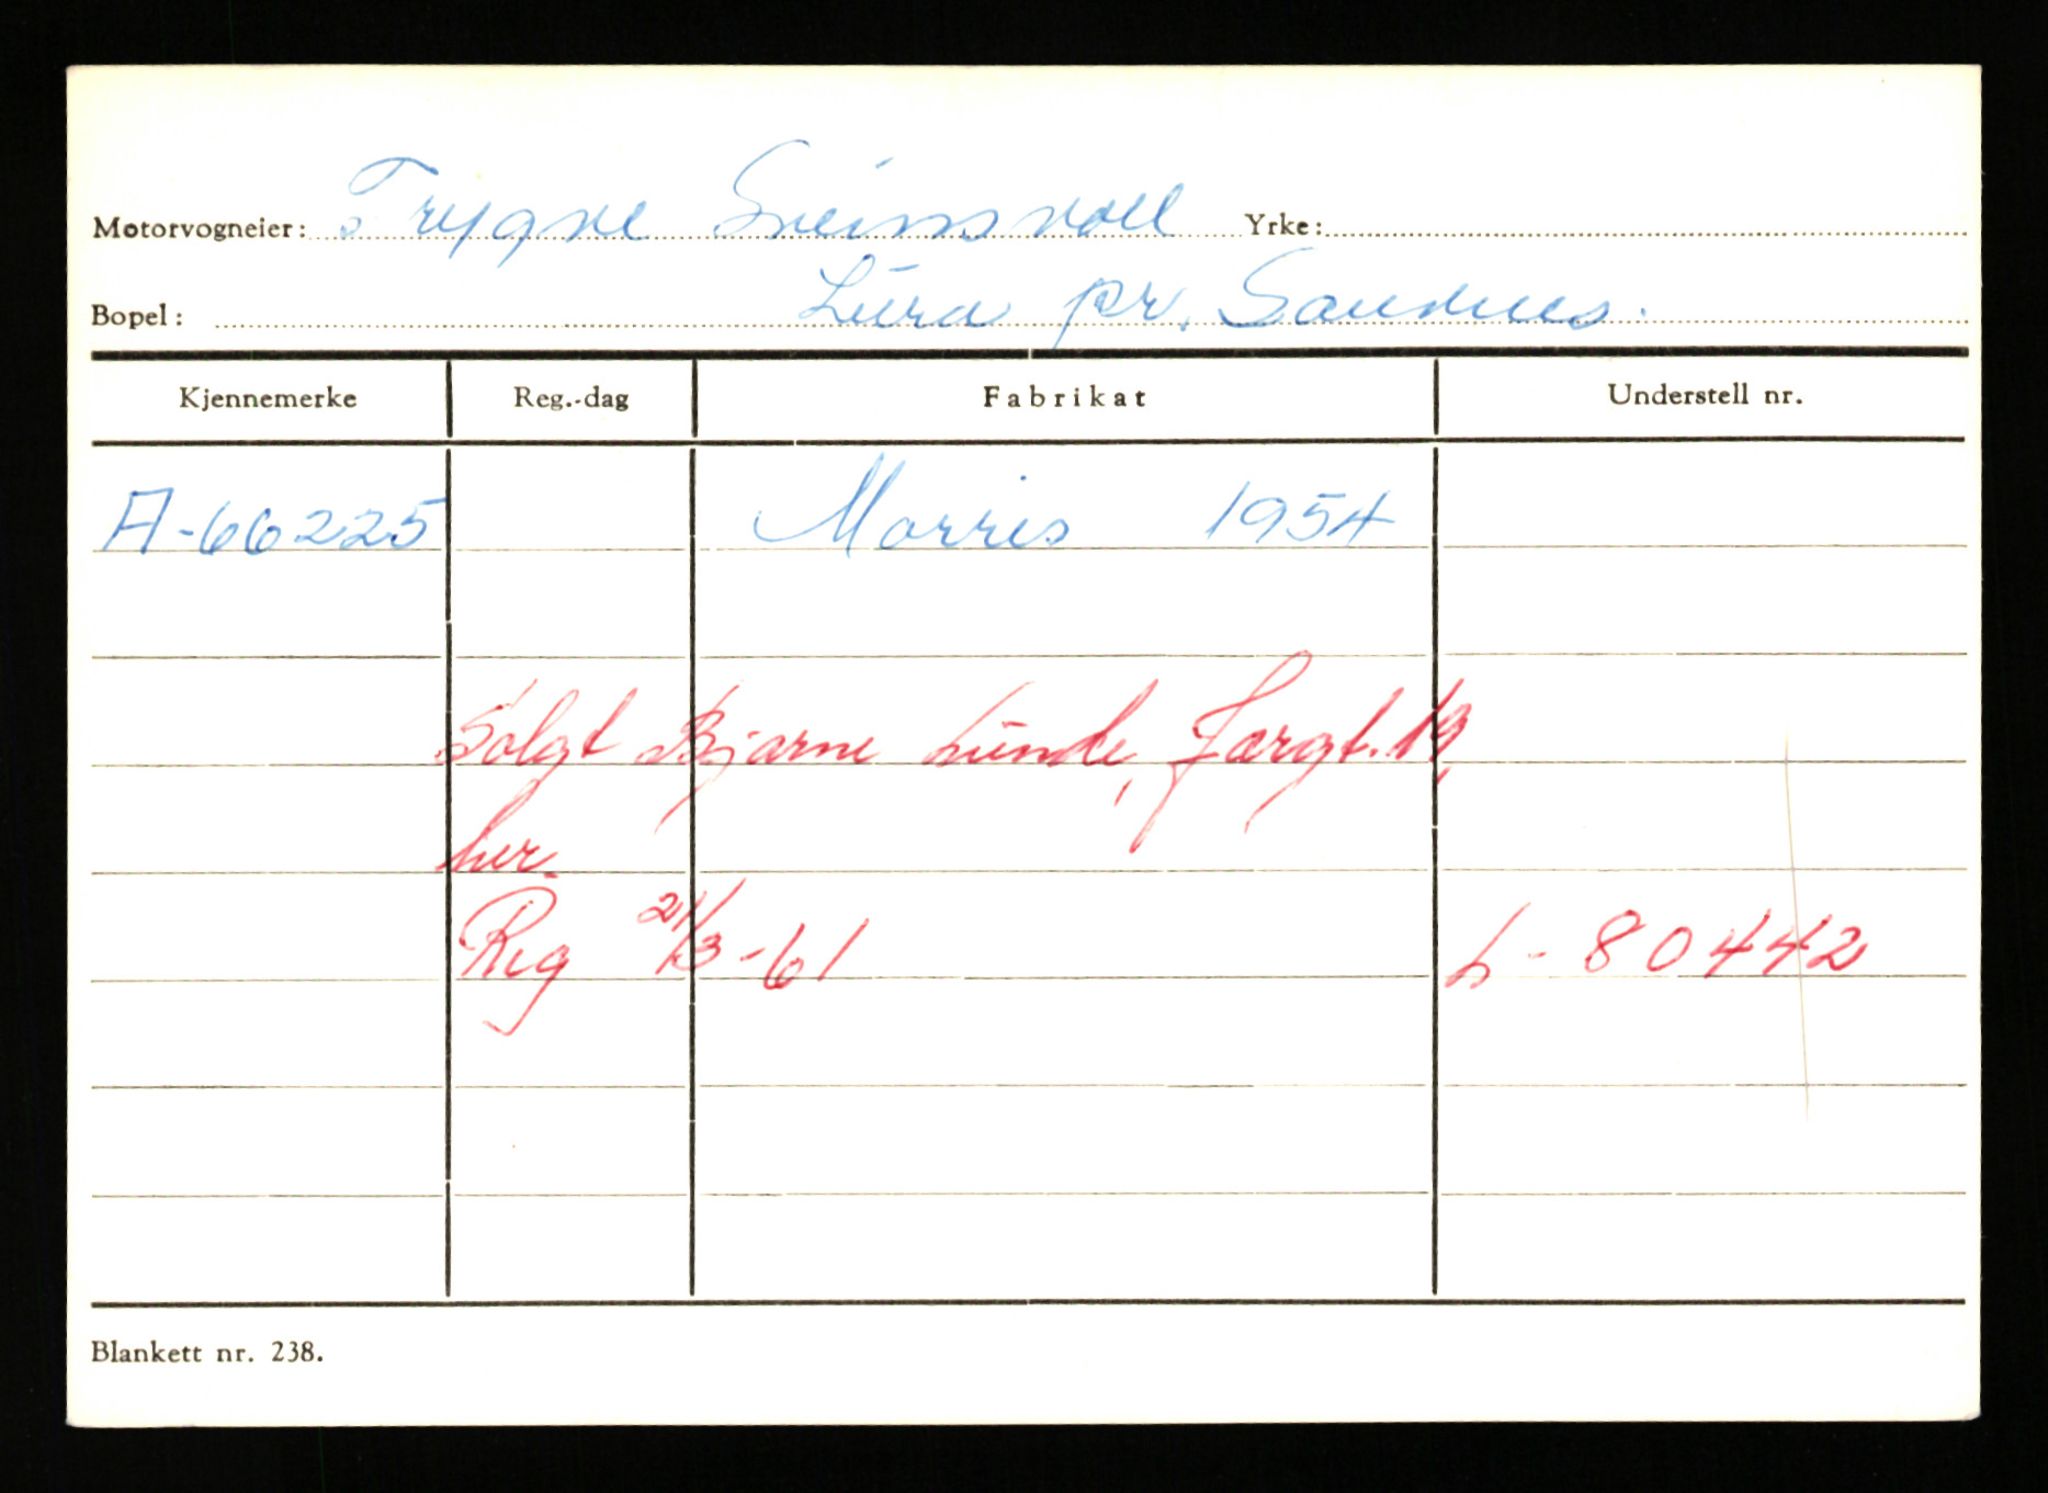 Motorvogneier: Trygve Sveinsvoll Yrke:
Bopel: Lura pr. Sandnes.
Kjennemerke Reg.-dag Fabrikat Understell nr.
A-66225 Morris 1954
Solgt Bjarne Lunde, Jærgt. 19,
her.
Reg 21/3-61 L-80442
Blankett nr. 238.